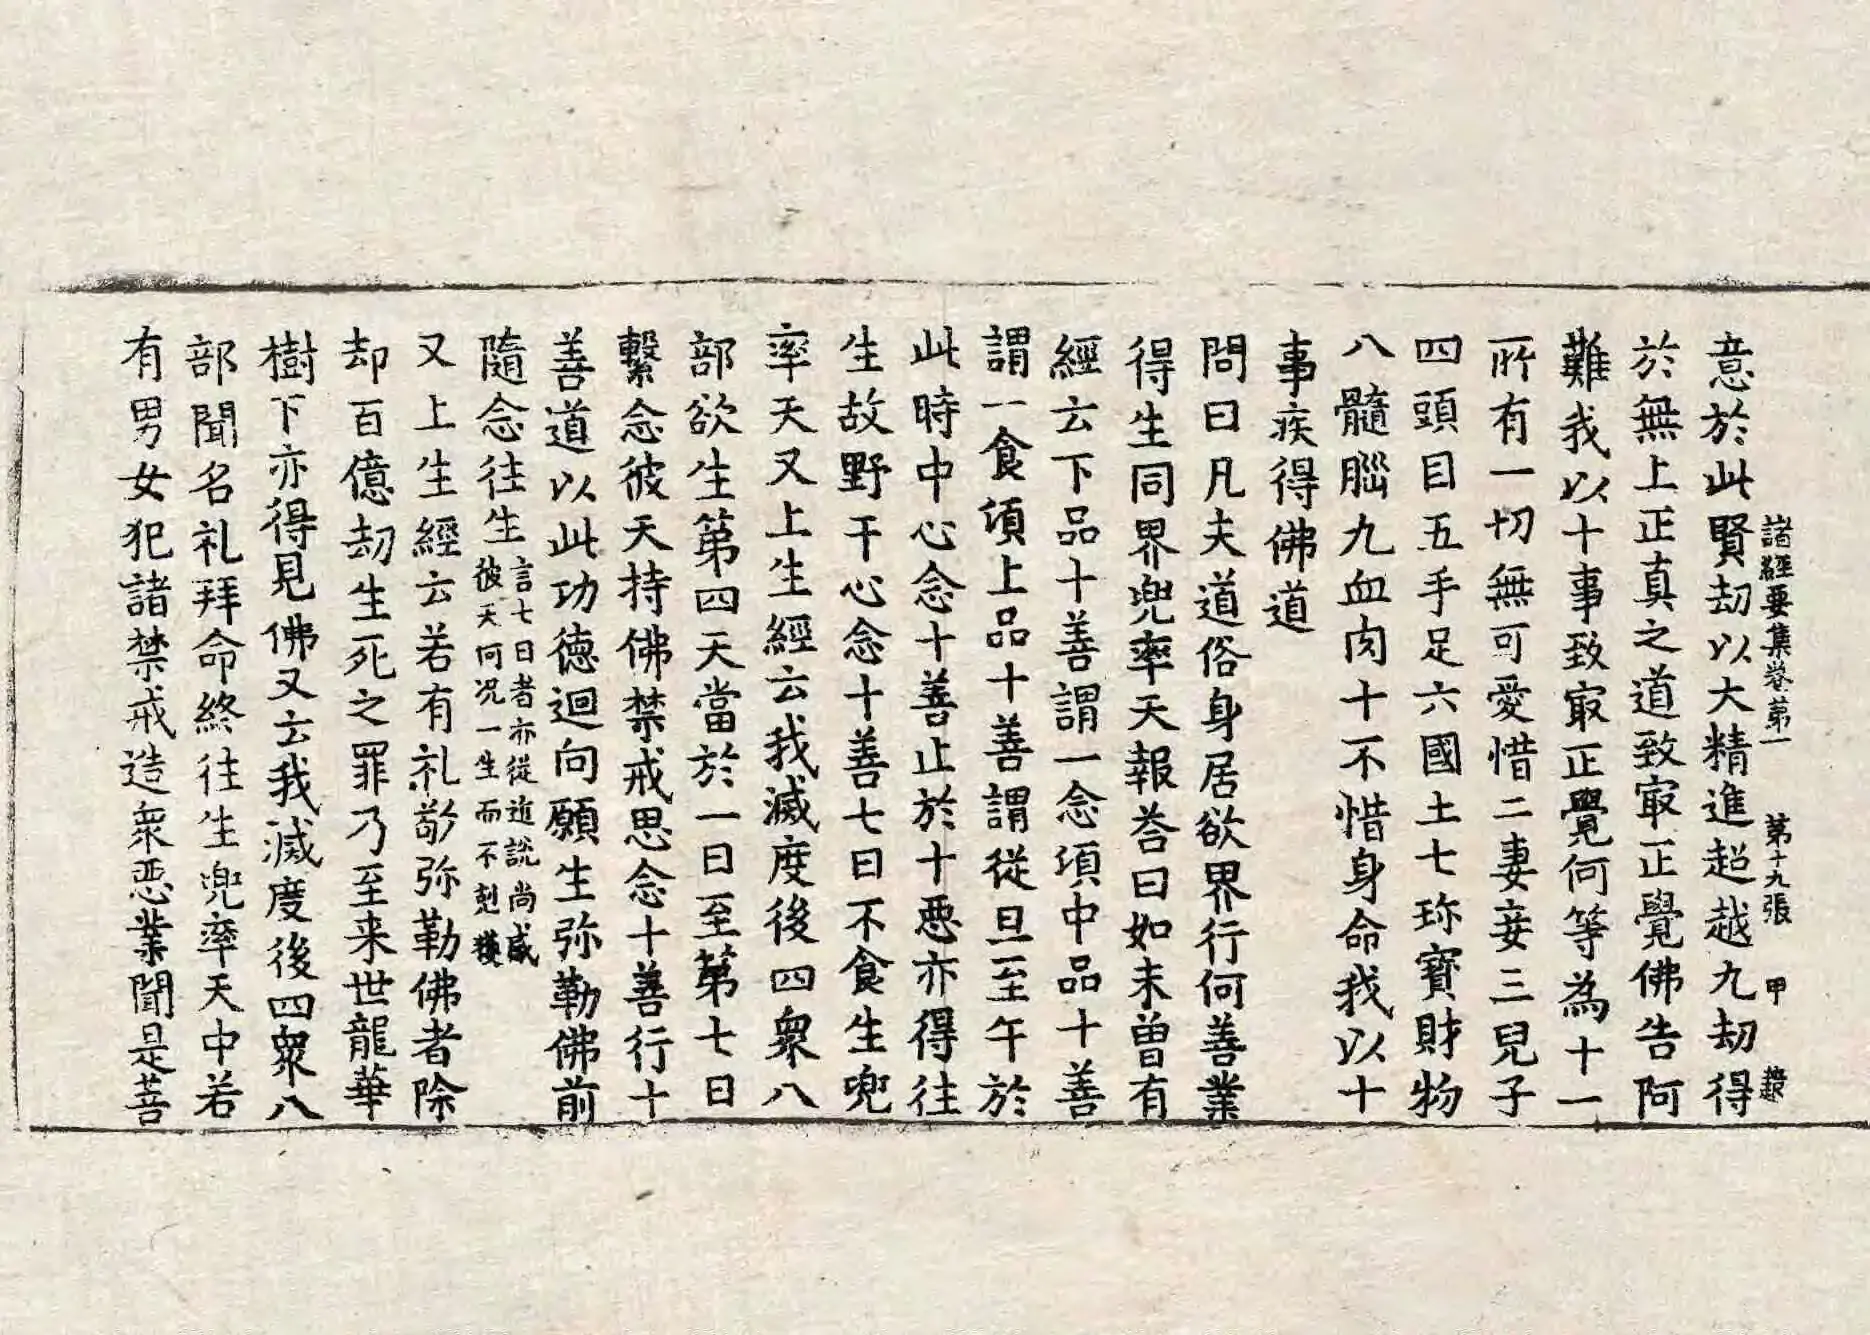 諸經要集卷第一 第十九張 甲
意於此賢劫以大精進超越九劫得
於無上正真之道致㝡正覺佛告阿
難我以十事致㝡正覺何等為十一
所有一切無可愛惜二妻妾三兒子
四頭目五手足六國土七珎寶財物
八髓腦九血肉十不惜身命我以十
事疾得佛道
問曰凡夫道俗身居欲界行何善業
得生同界兜率天報荅曰如未曾有
經云下品十善謂一念頃中品十善
謂一食頃上品十善謂從旦至午於
此時中心念十善止於十惡亦得往
生故野干心念十善七日不食生兜
率天又上生經云我滅度後四衆八
部欲生第四天當於一日至第七日
繫念彼天持佛禁戒思念十善行十
善道以此功德迴向願生弥勒佛前
隨念往生言七日者亦從近說尚感
彼天何况一生而不剋獲
又上生經云若有礼敬弥勒佛者除
却百億劫生死之罪乃至来世龍華
樹下亦得見佛又云我滅度後四衆八
部聞名礼拜命終往生兜率天中若
有男女犯諸禁戒造衆惡業聞是菩